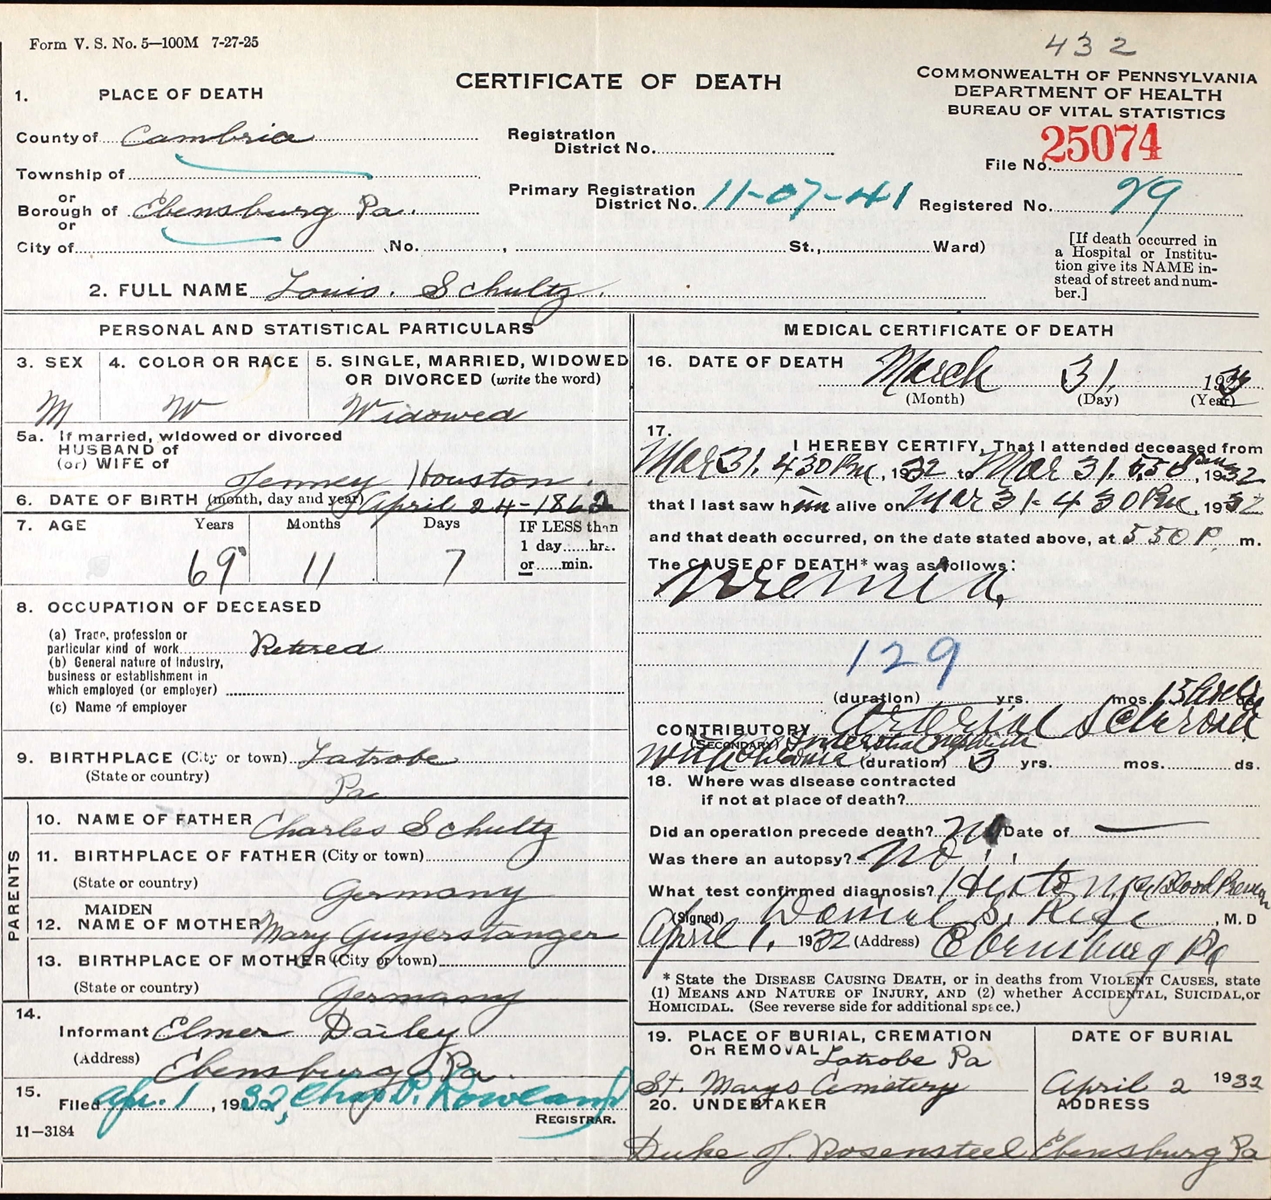 Form V. S. No. 5—100M 7-27-25
432
CERTIFICATE OF DEATH
COMMONWEALTH OF PENNSYLVANIA
DEPARTMENT OF HEALTH
BUREAU OF VITAL STATISTICS
1. PLACE OF DEATH
County of Cambria
Registration District No.
File No. 25074
Township of
or
Borough of Ebensburg Pa.
Primary Registration District No. 11-07-41
Registered No. 29
or
City of , No. , St., Ward)
[If death occurred in
a Hospital or Institu-
tion give its NAME in-
stead of street and num-
ber.]
2. FULL NAME Louis. Schultz.
PERSONAL AND STATISTICAL PARTICULARS
3. SEX
M
4. COLOR OR RACE
W
5. SINGLE, MARRIED, WIDOWED
OR DIVORCED (write the word)
Widowed
5a. If married, widowed or divorced
HUSBAND of
(or) WIFE of
Jenney Houston.
6. DATE OF BIRTH (month, day and year) April 24-1862
7. AGE Years Months Days
69 11 7
IF LESS than
1 day......hrs.
or......min.
8. OCCUPATION OF DECEASED
(a) Trade, profession or
particular kind of work Retired
(b) General nature of industry,
business or establishment in
which employed (or employer)
(c) Name of employer
9. BIRTHPLACE (City or town) Latrobe
(State or country) Pa
PARENTS
10. NAME OF FATHER Charles Schultz
11. BIRTHPLACE OF FATHER (City or town)
(State or country) Germany
12. MAIDEN
NAME OF MOTHER Mary
13. BIRTHPLACE OF MOTHER (City or town)
(State or country) Germany
14.
Informant Elmer Dailey
(Address) Ebensburg Pa.
15.
Filed Apr. 1, 1932, Chas D. Rowland
REGISTRAR.
11—3184
MEDICAL CERTIFICATE OF DEATH
16. DATE OF DEATH March 31. 193
(Month) (Day) (Year)
17.
I HEREBY CERTIFY, That I attended deceased from
Mar 31. 430 Pm, 1932 to Mar 31. 550 Pm, 1932
that I last saw him alive on Mar 31-430 Pm, 1932
and that death occurred, on the date stated above, at 550 P. m.
The CAUSE OF DEATH* was as follows:
Uremia.
129
(duration) yrs. mos. 15 ds.
CONTRIBUTORY Arterial Sclerosis
(SECONDARY) Interstitial nephritis
With Chronic (duration) 3 yrs. mos. ds.
18. Where was disease contracted
if not at place of death?
Did an operation precede death? No Date of —
Was there an autopsy? No
What test confirmed diagnosis? Blood Pressure
(Signed) Daniel S. , M. D
April 1, 1932 (Address) Ebensburg Pa
* State the DISEASE CAUSING DEATH, or in deaths from VIOLENT CAUSES, state
(1) MEANS AND NATURE OF INJURY, AND (2) whether ACCIDENTAL, SUICIDAL, or
HOMICIDAL. (See reverse side for additional space.)
19. PLACE OF BURIAL, CREMATION
OR REMOVAL Latrobe Pa
St. Marys Cemetery
DATE OF BURIAL
April 2 1932
20. UNDERTAKER
Duke J. Rosensteel
ADDRESS
Ebensburg Pa